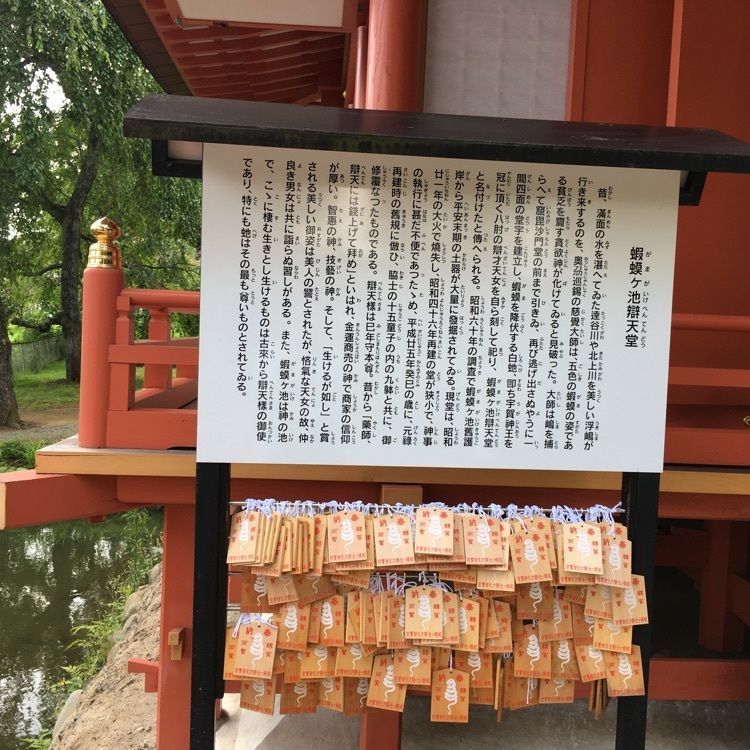 蝦蟆ヶ池辯天堂
昔、滿面の水を湛へてゐた達谷川や北上川を美しい浮嶋が
行き來するのを、奥𫝼巡錫の慈覺大師は、五色の蝦蟆の姿であ
る貧乏を齎す貪欲神が化けてゐると見破つた。大師は嶋を捕
らへて窟毘沙門堂の前まで引きゐ、再び逃げ出さぬやうに一
間四面の堂宇を建立し、蝦蟆を降伏する白虵、卽ち宇賀神王を
冠に頂く八肘の辯才天女を自ら刻して祀り、蝦蟆ヶ池辯天堂
と名付けたと傳へられる。昭和六十年の調査で蝦蟆ヶ池舊護
岸から平安末期の土器が大量に發掘されてゐる。現堂は、昭和
廿一年の大火で燒失し、昭和四十六年再建の堂が狹小で、神事
の執行に甚だ不便であつたゝめ、平成廿五年癸巳の歳に、元祿
再建時の舊規に倣ひ、脇士の十五童子の内の九躰と共に、御
修覆なつたものである。辯天樣は巳年守本尊。昔から「藥師、
辯天には錢上げて拜め」といはれ、金運商売の神で商家の信仰
が厚い。智惠の神、技藝の神。そして、「生けるが如し」と賞
される美しい御姿は美人の譽とされたが、悋氣な天女の故、仲
良き男女は共に詣らぬ習しがある。また、蝦蟆ヶ池は神の池
で、こゝに棲む生きとし生けるものは古來から辯天樣の御使
であり、特にも虵はその最も尊いものとされてゐる。
奉
納